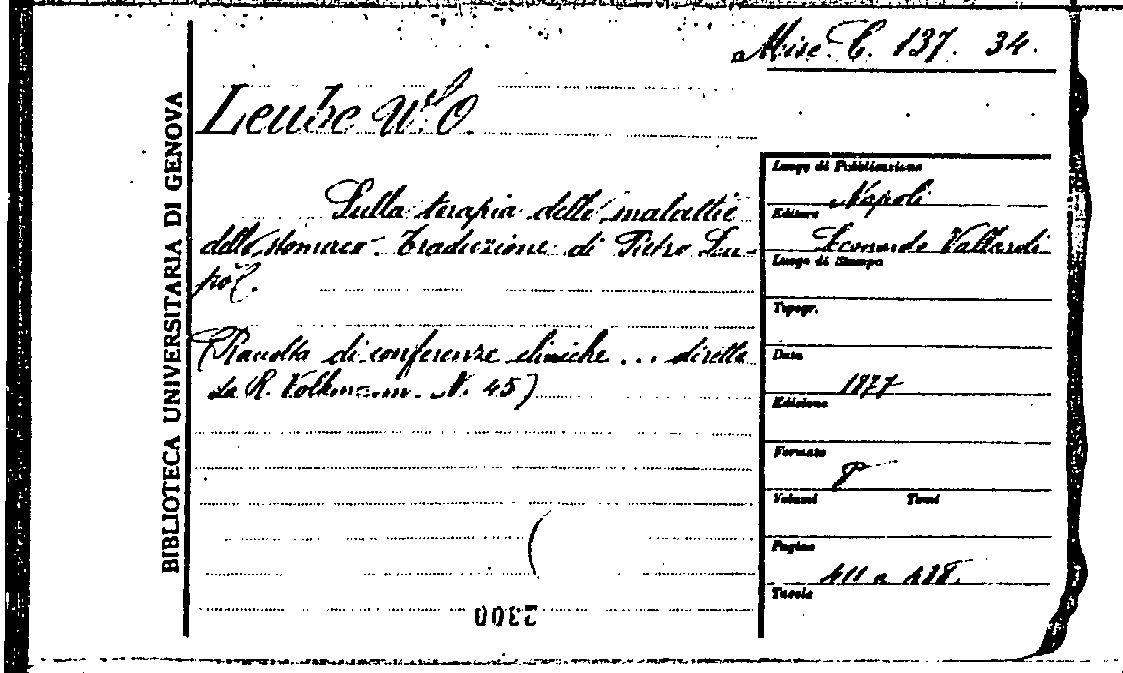 Misc. C. 137. 34.
BIBLIOTECA UNIVERSITARIA DI GENOVA
Leube W. O.
Sulla terapia delle malattie
dello stomaco. Traduzione di Pietro Lu-
poli.
(Raccolta di conferenze cliniche ... diretta
da R. Volkmann. N. 45)
2300
Luogo di Pubblicazione
Napoli
Editore
Leonardo Vallardi
Luogo di Stampa
Tipogr.
Data
1877
Edizione
Formato
8°
Volumi Tomi
Pagine
411 a 438.
Tavole